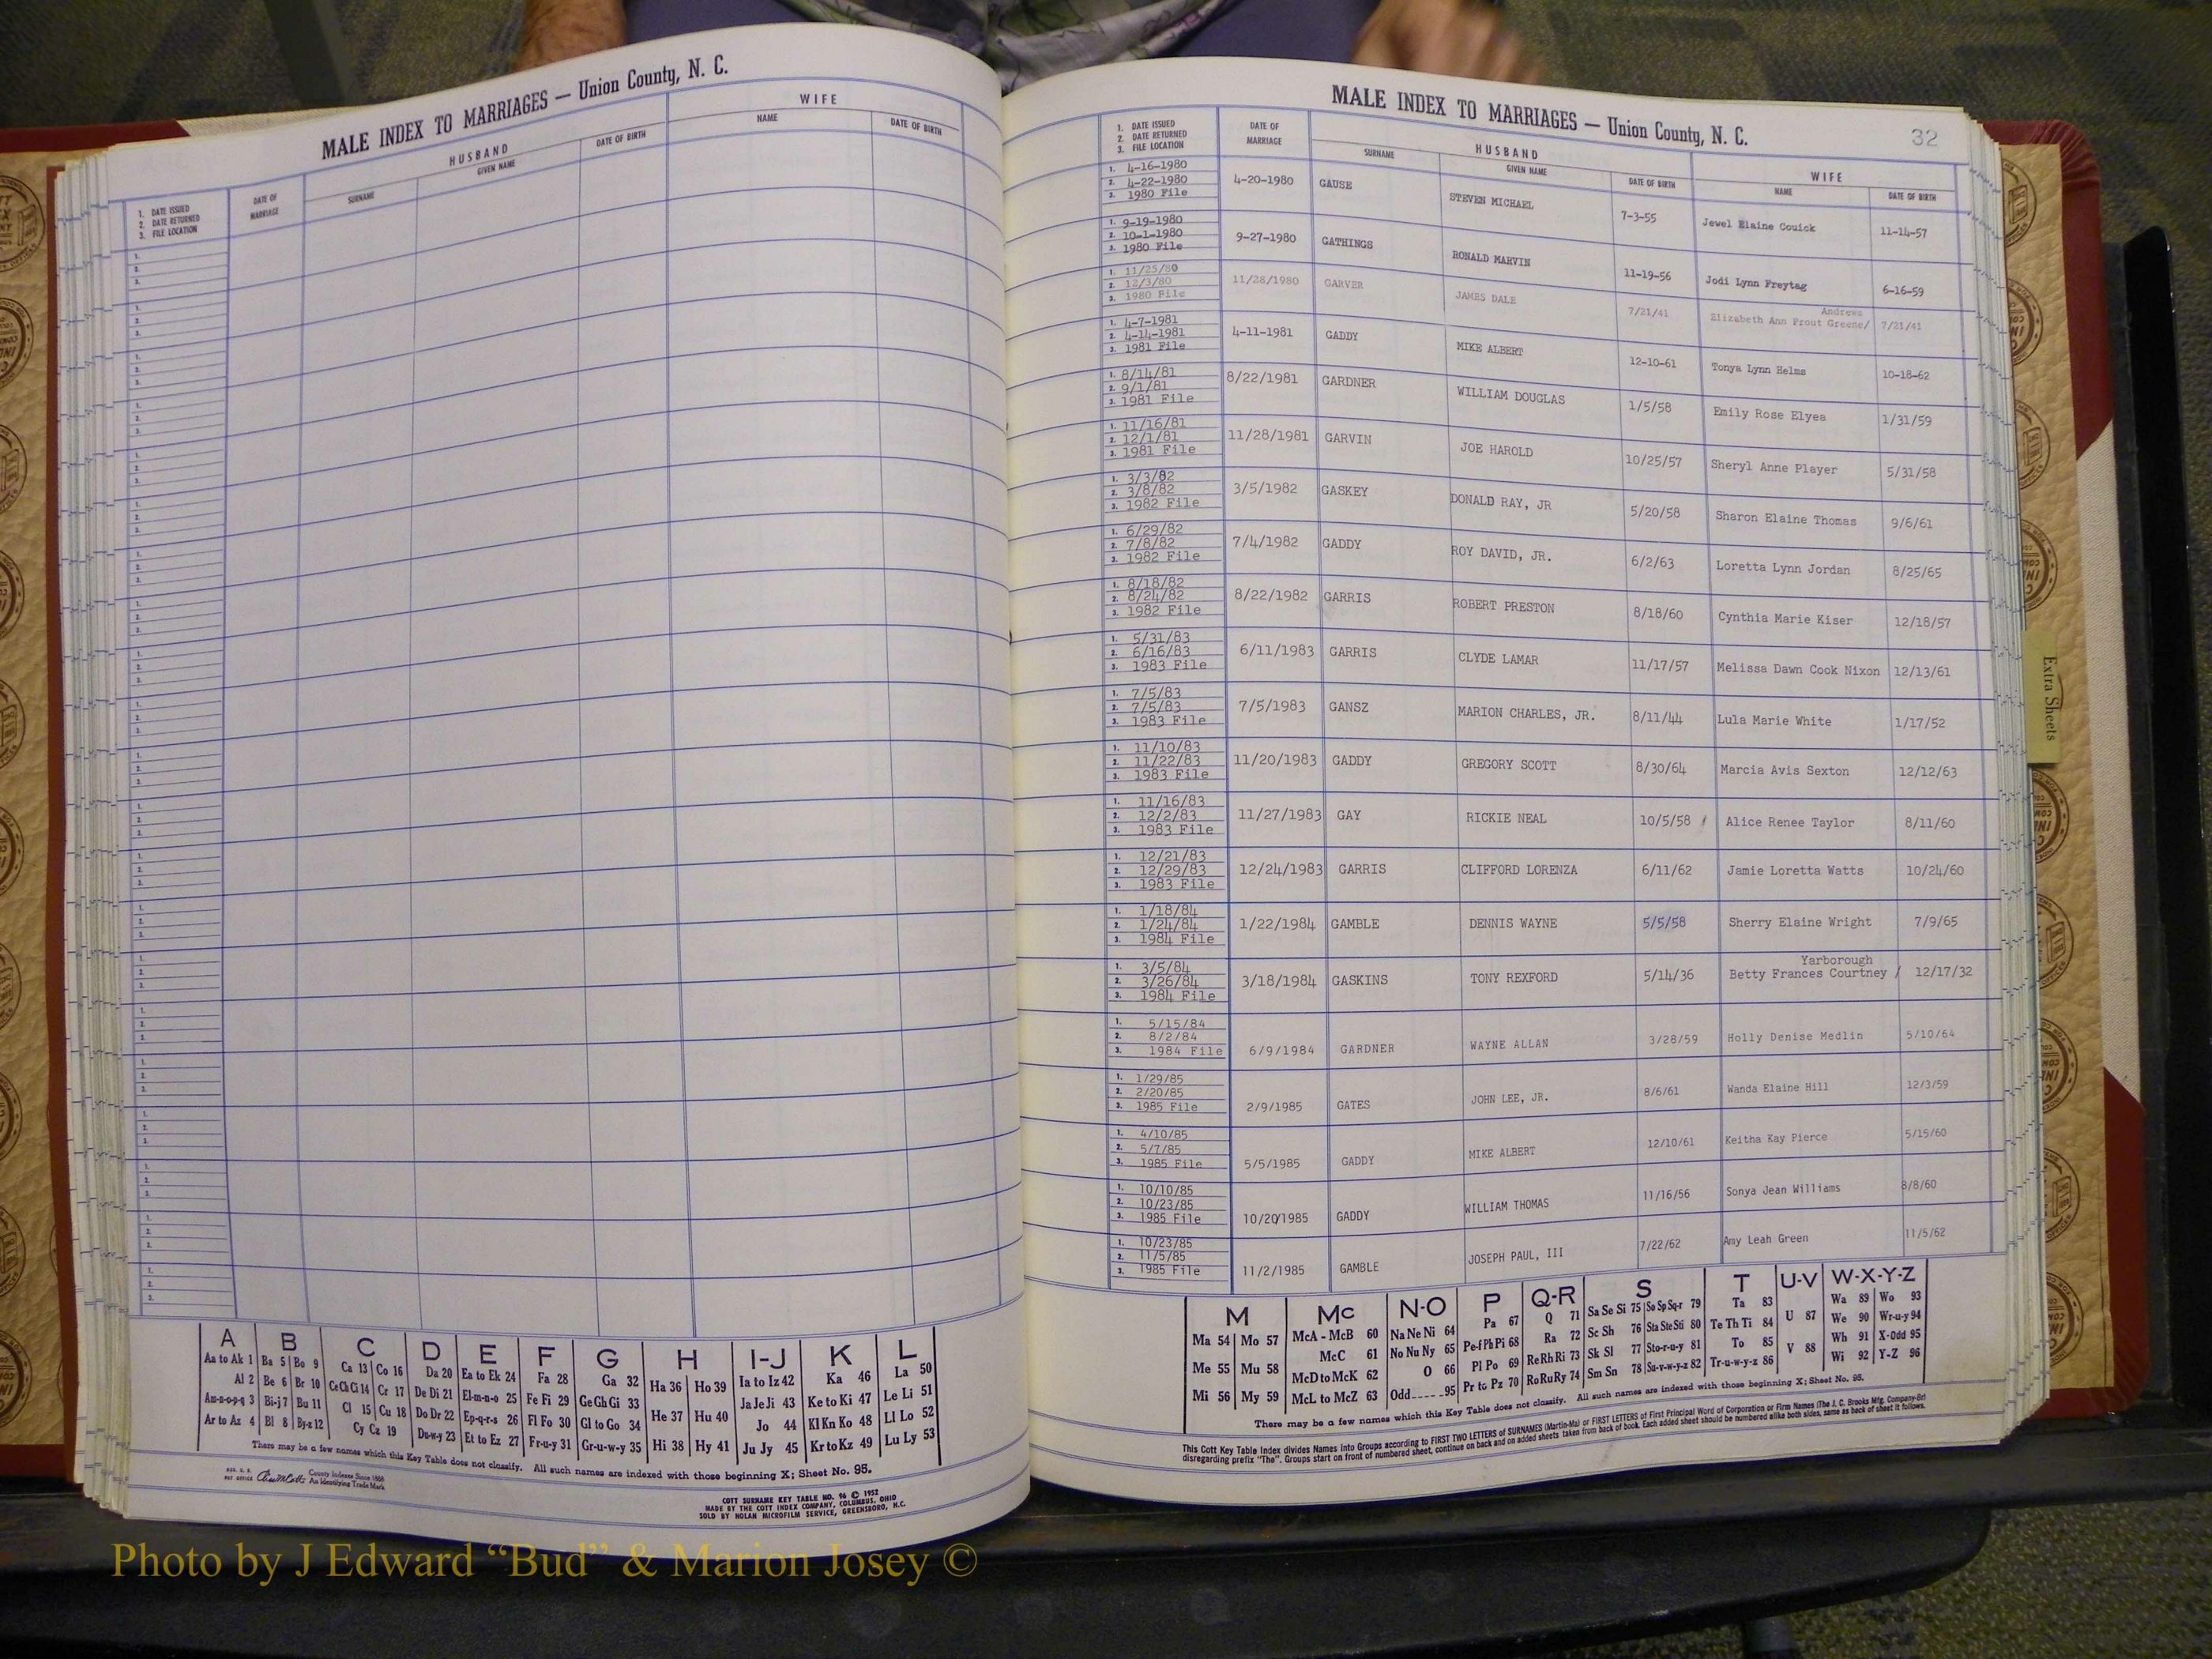 MALE INDEX TO MARRIAGES — Union County, N. C.
HUSBAND
WIFE
1. DATE ISSUED
2. DATE RETURNED
3. FILE LOCATION
DATE OF MARRIAGE
SURNAME
GIVEN NAME
DATE OF BIRTH
NAME
DATE OF BIRTH
A B C D E F G H I-J K L
Aa to Ak 1 Ba 5 Bo 9 Ca 13 Co 16 Da 20 Ea to Ek 24 Fa 28 Ga 32 Ha 36 Ho 39 Ia to Iz 42 Ka 46 La 50
Al 2 Be 6 Br 10 Ce Ch Ci 14 Cr 17 De Di 21 El-m-n-o 25 Fe Fi 29 Ge Gh Gi 33 Ja Je Ji 43 Ke to Ki 47 Le Li 51
Am-n-o-p-q 3 Bi-j 7 Bu 11 Cl 15 Cu 18 Do Dr 22 Ep-q-r-s 26 Fl Fo 30 Gl to Go 34 He 37 Hu 40 Jo 44 Kl Kn Ko 48 Ll Lo 52
Ar to Az 4 Bl 8 By-z 12 Cy Cz 19 Du-w-y 23 Et to Ez 27 Fr-u-y 31 Gr-u-w-y 35 Hi 38 Hy 41 Ju Jy 45 Kr to Kz 49 Lu Ly 53
There may be a few names which this Key Table does not classify. All such names are indexed with those beginning X; Sheet No. 95.
County Indexes Since 1888
An Identifying Trade Mark
COTT SURNAME KEY TABLE NO. 96 © 1952
MADE BY THE COTT INDEX COMPANY, COLUMBUS, OHIO
SOLD BY NOLAN MICROFILM SERVICE, GREENSBORO, N.C.
MALE INDEX TO MARRIAGES — Union County, N. C.
32
1. DATE ISSUED
2. DATE RETURNED
3. FILE LOCATION
DATE OF MARRIAGE
HUSBAND
SURNAME
GIVEN NAME
DATE OF BIRTH
WIFE
NAME
DATE OF BIRTH
1. 4-16-1980
2. 4-22-1980 4-20-1980 GAUSE STEVEN MICHAEL 7-3-55 Jewel Elaine Couick 11-14-57
3. 1980 File
1. 9-19-1980
2. 10-1-1980 9-27-1980 GATHINGS RONALD MARVIN 11-19-56 Jodi Lynn Freytag 6-16-59
3. 1980 File
1. 11/25/80 Andrews
2. 12/3/80 11/28/1980 GARVER JAMES DALE 7/21/41 Elizabeth Ann Prout Greene/ 7/31/41
3. 1980 File
1. 4-7-1981
2. 4-14-1981 4-11-1981 GADDY MIKE ALBERT 12-10-61 Tonya Lynn Helms 10-18-62
3. 1981 File
1. 8/14/81
2. 9/1/81 8/22/1981 GARDNER WILLIAM DOUGLAS 1/5/58 Emily Rose Elyea 1/31/59
3. 1981 File
1. 11/16/81
2. 12/1/81 11/28/1981 GARVIN JOE HAROLD 10/25/57 Sheryl Anne Player 5/31/58
3. 1981 File
1. 3/3/82
2. 3/8/82 3/5/1982 GASKEY DONALD RAY, JR 5/20/58 Sharon Elaine Thomas 9/6/61
3. 1982 File
1. 6/29/82
2. 7/8/82 7/4/1982 GADDY ROY DAVID, JR. 6/2/63 Loretta Lynn Jordan 8/25/65
3. 1982 File
1. 8/18/82
2. 8/24/82 8/22/1982 GARRIS ROBERT PRESTON 8/18/60 Cynthia Marie Kiser 12/18/57
3. 1982 File
1. 5/31/83
2. 6/16/83 6/11/1983 GARRIS CLYDE LAMAR 11/17/57 Melissa Dawn Cook Nixon 12/13/61
3. 1983 File
1. 7/5/83
2. 7/5/83 7/5/1983 GANSZ MARION CHARLES, JR. 8/11/44 Lula Marie White 1/17/52
3. 1983 File
1. 11/10/83
2. 11/22/83 11/20/1983 GADDY GREGORY SCOTT 8/30/64 Marcia Avis Sexton 12/12/63
3. 1983 File
1. 11/16/83
2. 12/2/83 11/27/1983 GAY RICKIE NEAL 10/5/58 Alice Renee Taylor 8/11/60
3. 1983 File
1. 12/21/83
2. 12/29/83 12/24/1983 GARRIS CLIFFORD LORENZA 6/11/62 Jamie Loretta Watts 10/24/60
3. 1983 File
1. 1/18/84
2. 1/24/84 1/22/1984 GAMBLE DENNIS WAYNE 5/5/58 Sherry Elaine Wright 7/9/65
3. 1984 File
1. 3/5/84 Yarborough
2. 3/26/84 3/18/1984 GASKINS TONY REXFORD 5/14/36 Betty Frances Courtney / 12/17/32
3. 1984 File
1. 5/15/84
2. 8/2/84
3. 1984 File 6/9/1984 GARDNER WAYNE ALLAN 3/28/59 Holly Denise Medlin 5/10/64
1. 1/29/85
2. 2/20/85
3. 1985 File 2/9/1985 GATES JOHN LEE, JR. 8/6/61 Wanda Elaine Hill 12/3/59
1. 4/10/85
2. 5/7/85
3. 1985 File 5/5/1985 GADDY MIKE ALBERT 12/10/61 Keitha Kay Pierce 5/15/60
1. 10/10/85
2. 10/23/85
3. 1985 File 10/20/1985 GADDY WILLIAM THOMAS 11/16/56 Sonya Jean Williams 8/8/60
1. 10/23/85
2. 11/5/85
3. 1985 File 11/2/1985 GAMBLE JOSEPH PAUL, III 7/22/62 Amy Leah Green 11/5/62
M Mc N-O P Q-R S T U-V W-X-Y-Z
Ma 54 Mo 57 McA - McB 60 Na Ne Ni 64 Pa 67 Q 71 Sa Se Si 75 So Sp Sq-r 79 Ta 83 U 87 Wa 89 Wo 93
McC 61 No Nu Ny 65 Pe-f Ph Pi 68 Ra 72 Sc Sh 76 Sta Ste Sti 80 Te Th Ti 84 We 90 Wr-u-y 94
Me 55 Mu 58 McD to McK 62 O 66 Pl Po 69 Re Rh Ri 73 Sk Sl 77 Sto-r-u-y 81 To 85 V 88 Wh 91 X-Odd 95
Mi 56 My 59 McL to McZ 63 Odd 95 Pr to Pz 70 Ro Ru Ry 74 Sm Sn 78 Su-v-w-y-z 82 Tr-u-w-y-z 86 Wi 92 Y-Z 96
There may be a few names which this Key Table does not classify. All such names are indexed with those beginning X; Sheet No. 95.
This Cott Key Table Index divides Names into Groups according to FIRST TWO LETTERS of SURNAMES (Martin-Ma) or FIRST LETTERS of First Principal Word of Corporation or Firm Names (The J. C. Brooks Mfg. Company-Br)
disregarding prefix "The". Groups start on front of numbered sheet, continue on back and on added sheets taken from back of book. Each added sheet should be numbered alike both sides, same as back of sheet it follows.
Extra Sheets
Photo by J Edward “Bud” & Marion Josey ©